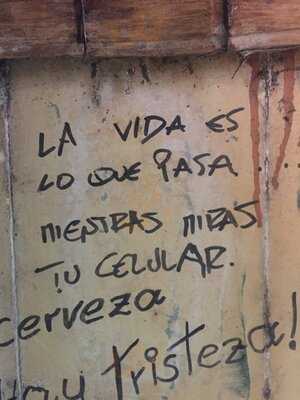 LA VIDA ES
LO QUE PASA
MIENTRAS MIRAS
TU CELULAR.
cerveza
tristeza!